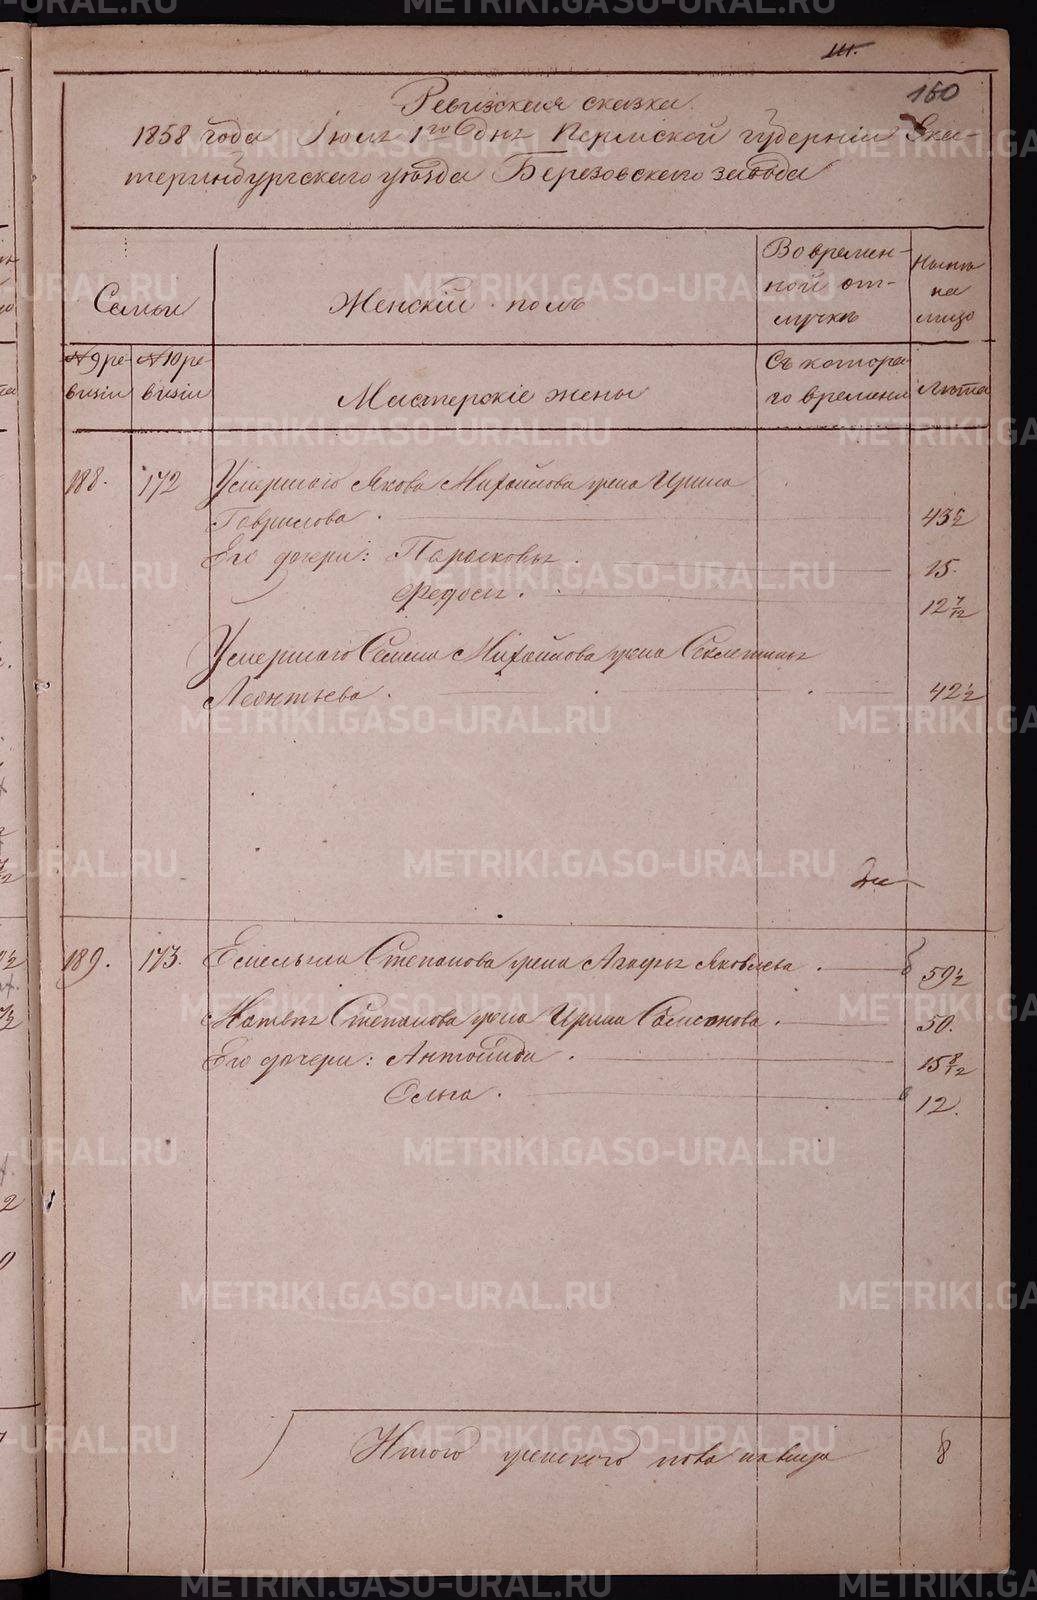 160
Ревизская сказка
1858 года Июля 1го дня Пермской губернии Ека-
теринбургскаго уѣзда Березовскаго завода
Семьи
Женскій полъ
Во времен-
ной от-
лучкѣ
Нынѣ
на
лицо
№ 9 ре-
визіи
№ 10 ре-
визіи
Мастерскіе жены
Съ котора-
го времени
Лѣта
188.
172
Умершаго Якова Михайлова жена Ирина
Гаврилова
43
Его дочери: Парасковья
15.
Федосья
12 7/12
Умершаго Семена Михайлова жена
Леонтьева
42 1/2
189.
173.
Емельяна Степанова жена Агафья Яковлева
59 1/2
Матвѣя Степанова жена Ирина Самсонова
50.
Его дочери: Антонида
15 8/12
Ольга
12.
Итого женского пола на лицо
8
METRIKI.GASO-URAL.RU